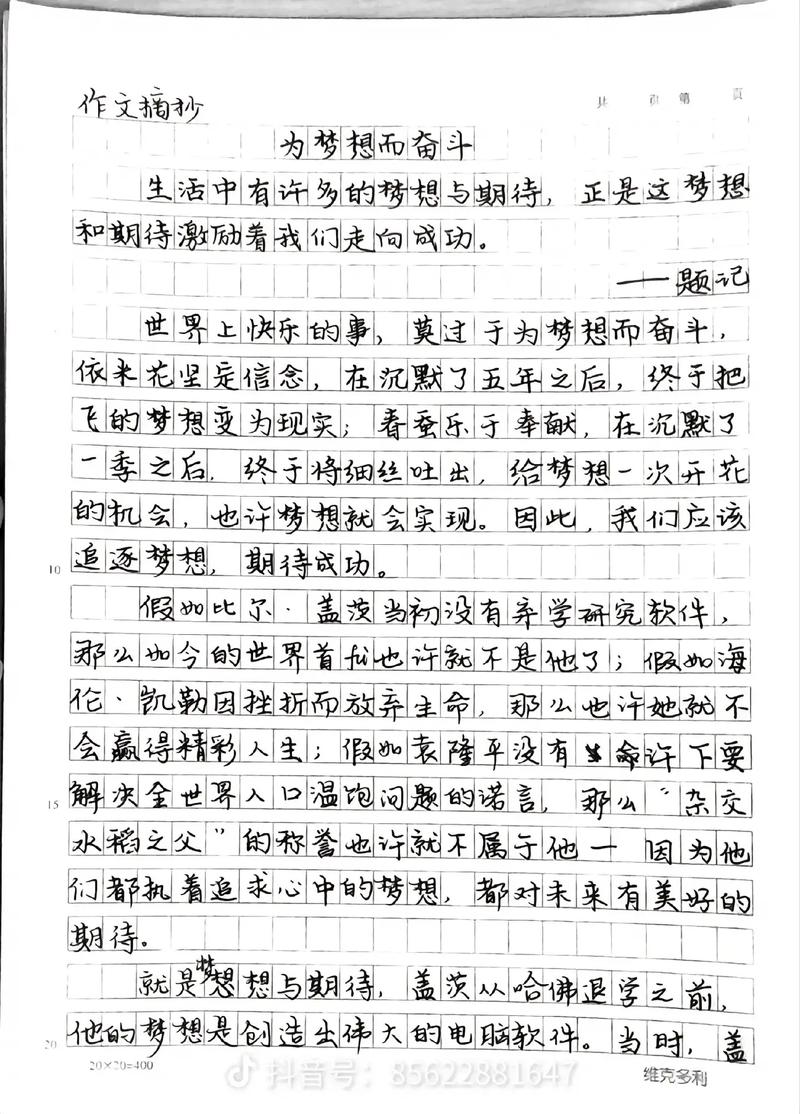 作文摘抄
共 页 第 页
为梦想而奋斗
生活中有许多的梦想与期待，正是这梦想
和期待激励着我们走向成功。
——题记
世界上快乐的事，莫过于为梦想而奋斗，
依米花坚定信念，在沉默了五年之后，终于把
飞的梦想变为现实；春蚕乐于奉献，在沉默了
一季之后，终于将细丝吐出，给梦想一次开花
的机会，也许梦想就会实现。因此，我们应该
10 追逐梦想，期待成功。
假如比尔·盖茨当初没有弃学研究软件，
那么如今的世界首也许就不是他了；假如海
伦·凯勒因挫折而放弃生命，那么也许她就不
会赢得精彩人生；假如袁隆平没有命许下要
15 解决全世界人口温饱问题的诺言，那么“杂交
水稻之父”的称誉也许就不属于他一因为他
们都执着追求心中的梦想，都对未来有美好的
期待。
就是梦想想与期待，盖茨从哈佛退学之前，
20 他的梦想是创造出伟大的电脑软件。当时，盖
20×20=400
抖音号：85622881647
维克多利